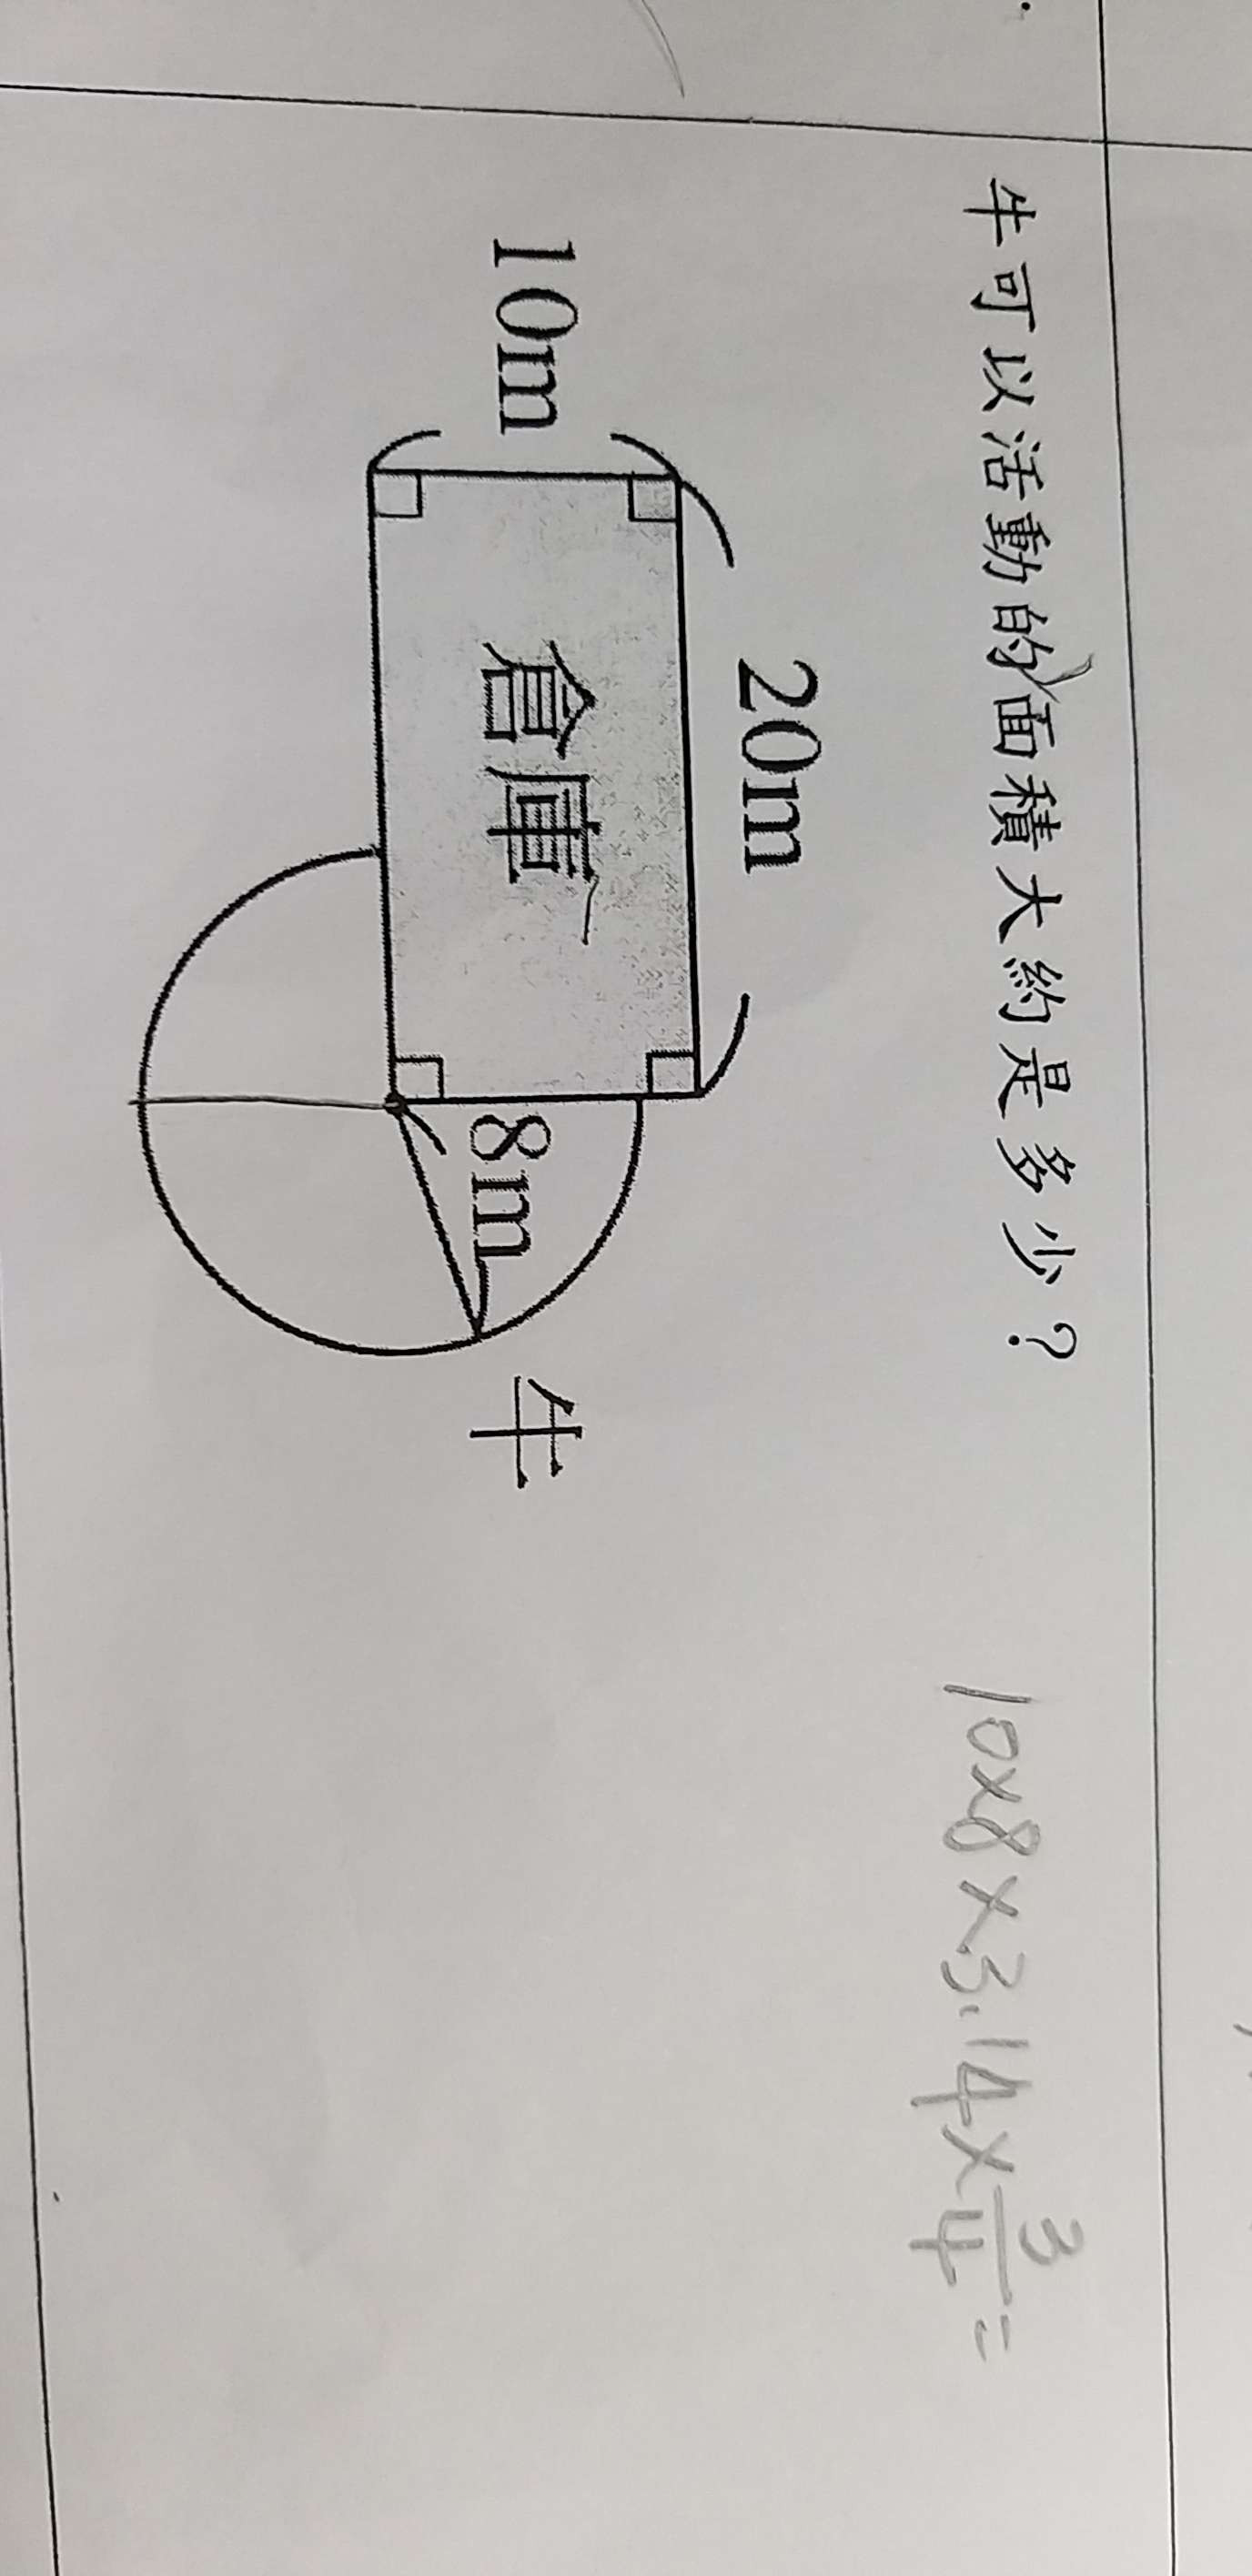 牛可以活動的面積大約是多少？
10×8×3.14×3/4=
20m
10m
倉庫
8m
牛